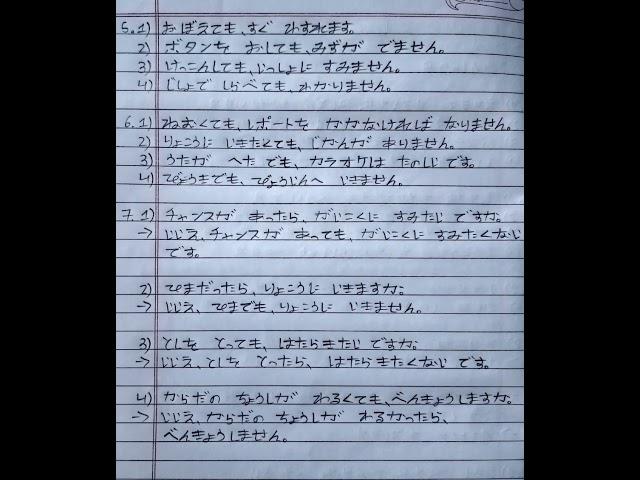 5. 1) おぼえても、すぐ わすれます。
2) ボタンを おしても、みずが でません。
3) けっこんしても、いっしょに すみません。
4) じしょで しらべても、わかりません。
6. 1) ねむくても、レポートを かかなければ なりません。
2) りょこうに いきたくても、じかんが ありません。
3) うたが へた でも、カラオケは たのしい です。
4) びょうきでも、びょういんへ いきません。
7. 1) チャンスが あったら、がいこくに すみたい ですか。
→ いいえ、チャンスが あっても、がいこくに すみたくない
です。
2) ひまだったら、りょこうに いきますか。
→ いいえ、ひまでも、りょこうに いきません。
3) としを とっても、はたらきたい ですか。
→ いいえ、としを とったら、はたらきたくない です。
4) からだの ちょうしが わるくても、べんきょうしますか。
→ いいえ、からだの ちょうしが わるかったら、
べんきょうしません。